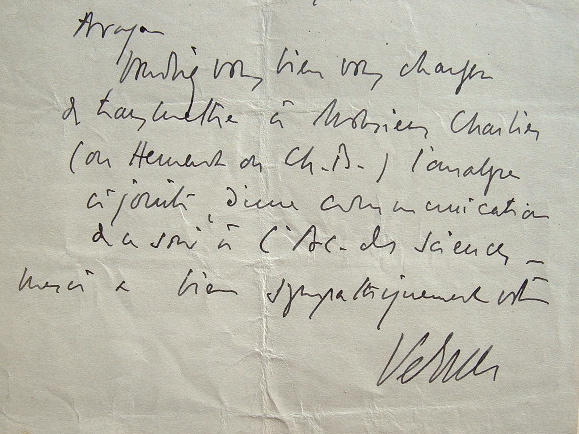 Aragon
Voudriez vous bien vous charger
de transmettre à Monsieur Charlier
(ou Hement ou Ch. B.) l'analyse
ci jointe d'une communication
de ce soir à l'Ac. des Sciences_
Merci & bien sympathiquement votre